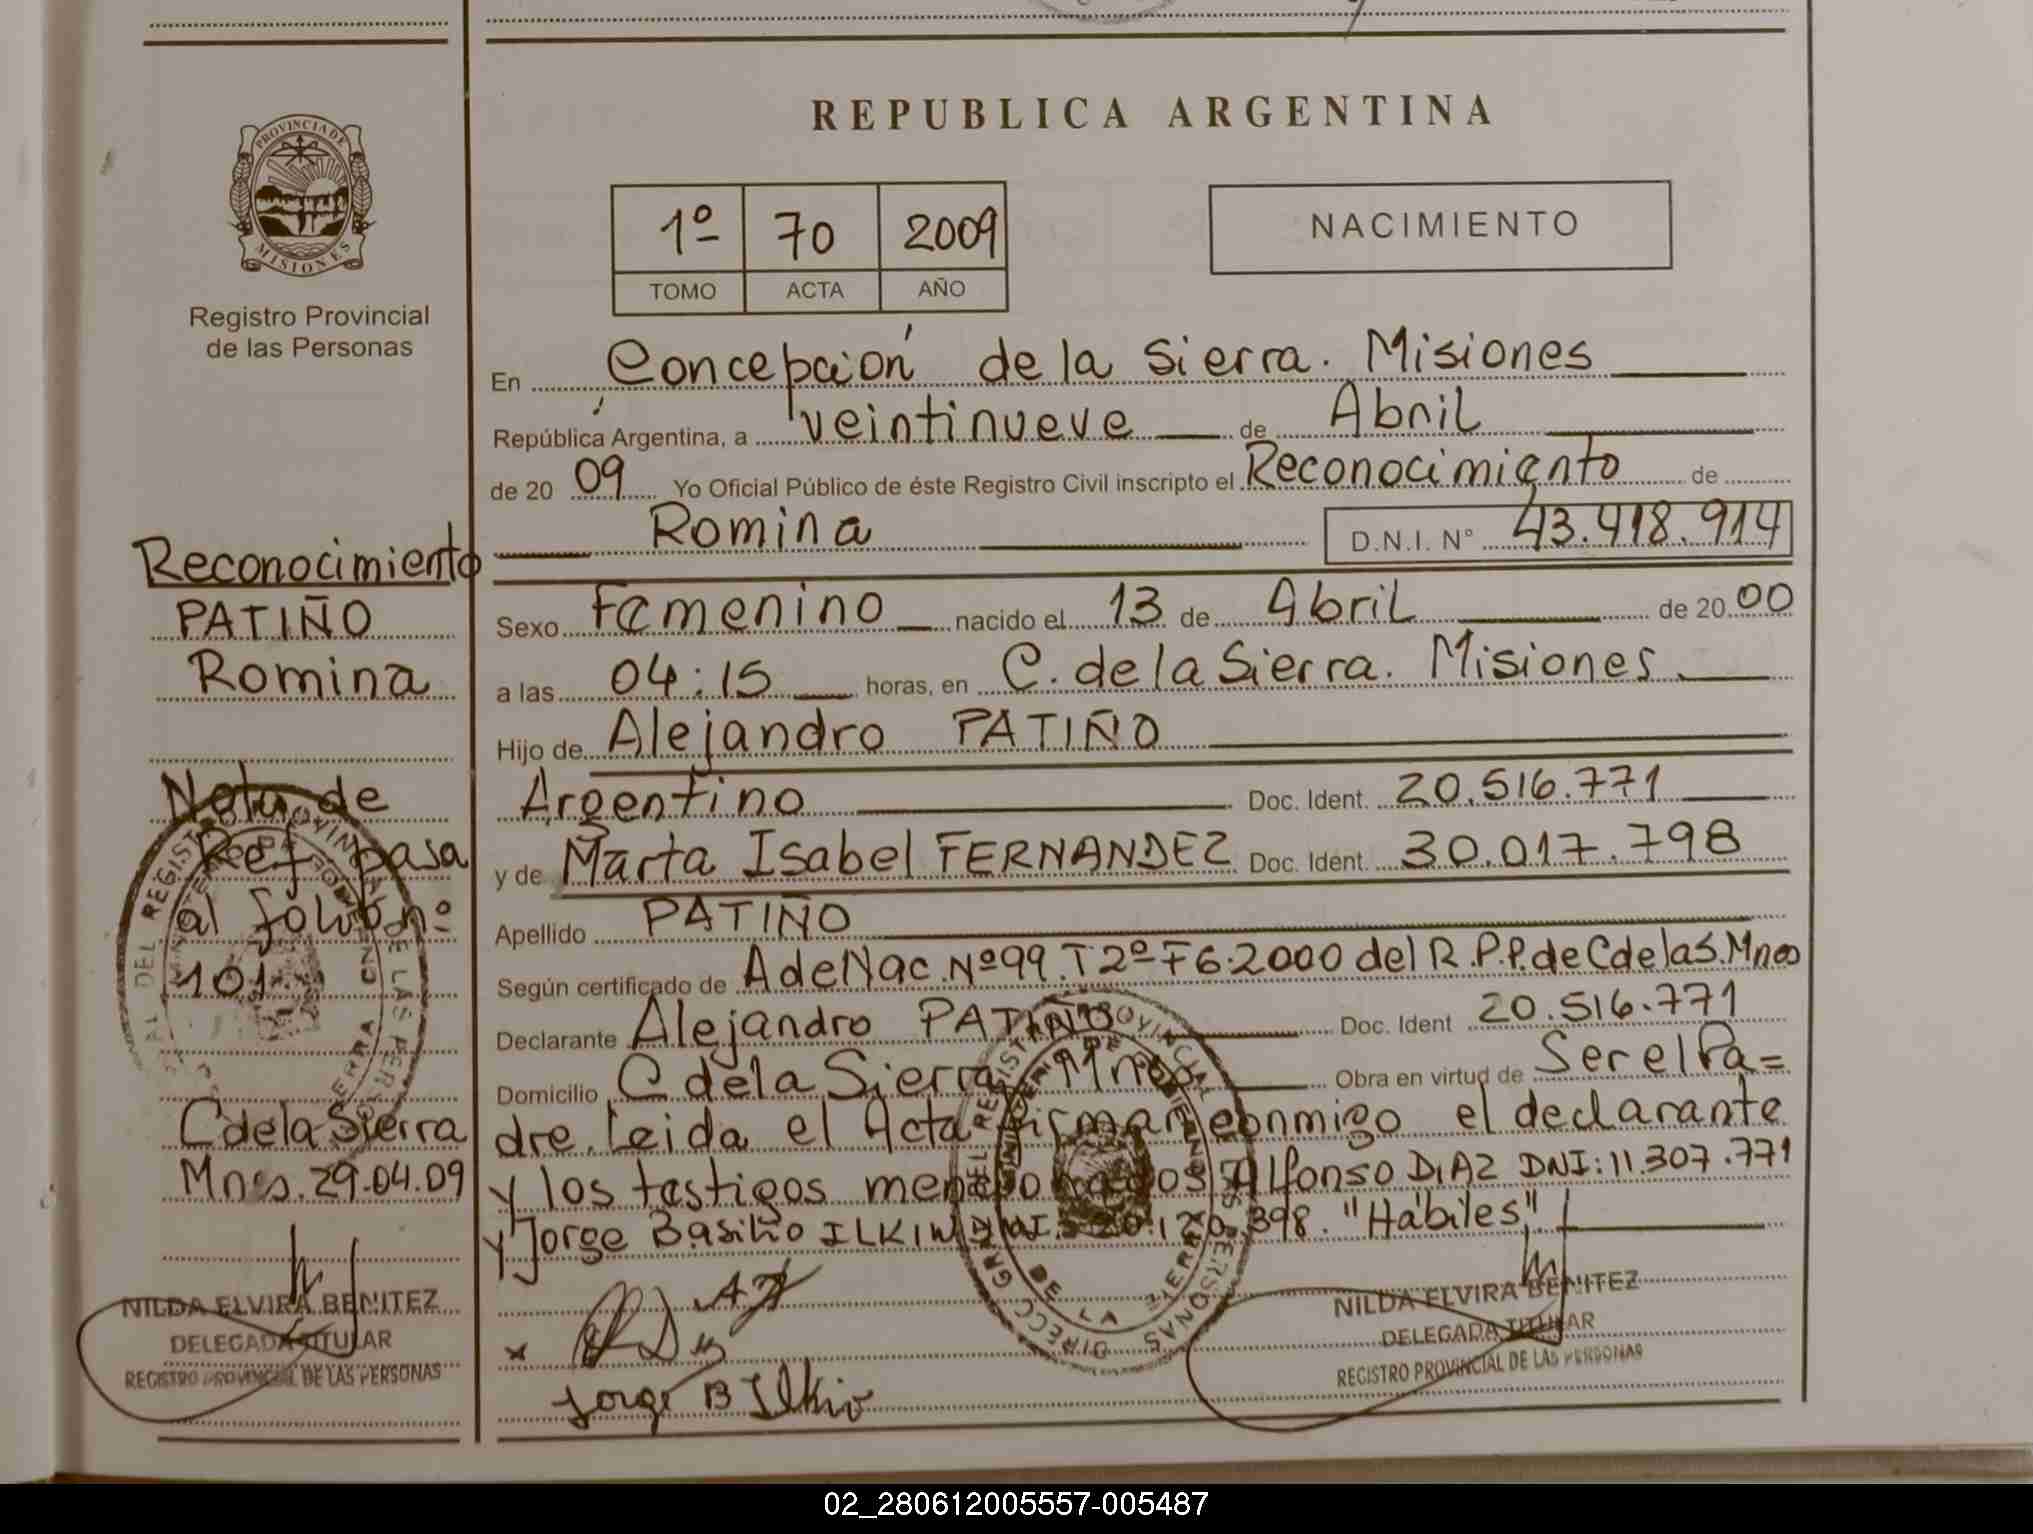 REPUBLICA ARGENTINA
PROVINCIA DE
MISIONES
Registro Provincial
de las Personas
1º 70 2009
TOMO ACTA AÑO
NACIMIENTO
En Concepción de la Sierra. Misiones
República Argentina, a veintinueve de Abril
de 20 09 Yo Oficial Público de éste Registro Civil inscripto el Reconocimiento de
Romina D.N.I. N° 43.418.914
Sexo Femenino nacido el 13 de Abril de 20 00
a las 04:15 horas, en C. de la Sierra. Misiones
Hijo de Alejandro PATIÑO
Argentino Doc. Ident. 20.516.771
y de Marta Isabel FERNANDEZ Doc. Ident. 30.017.798
Apellido PATIÑO
Según certificado de A de Nac. Nº 99. T 2º F 6. 2000 del R.P.P. de C de la S. Mnes
Declarante Alejandro PATIÑO Doc. Ident 20.516.771
Domicilio C de la Sierra Mnes Obra en virtud de Ser el Pa=
dre. Leida el Acta firman conmigo el declarante
y los testigos mencionados Alfonso DIAZ DNI: 11.307.771
y Jorge Basilio ILKIW DNI 20.120.398. "Hábiles"
Jorge B Ilkiw
NILDA ELVIRA BENITEZ
DELEGADA TITULAR
REGISTRO PROVINCIAL DE LAS PERSONAS
Reconocimiento
PATIÑO
Romina
Nota de
Ref pasa
al folio nº
101
C de la Sierra
Mnes. 29.04.09
NILDA ELVIRA BENITEZ
DELEGADA TITULAR
REGISTRO PROVINCIAL DE LAS PERSONAS
02_280612005557-005487